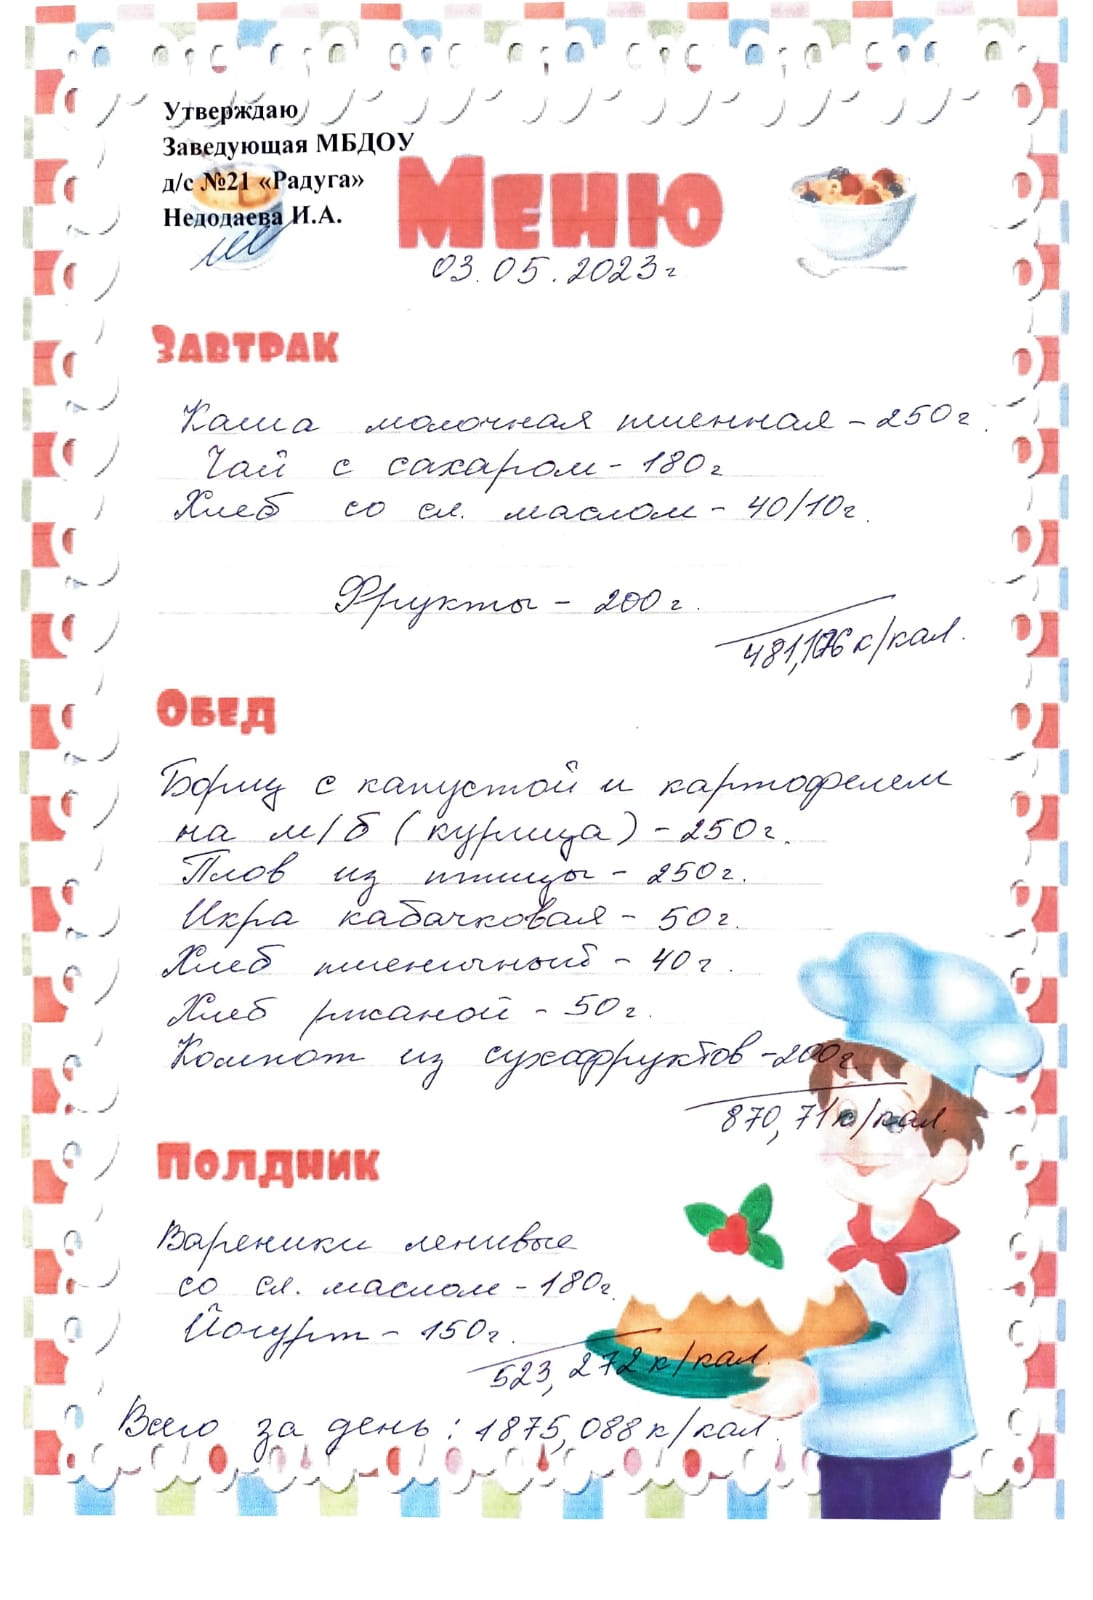 Утверждаю
Заведующая МБДОУ
д/с №21 «Радуга»
Недодаева И.А.
Меню
03.05.2023г
Завтрак
Каша молочная пшенная - 250г.
Чай с сахаром - 180г
Хлеб со сл. маслом - 40/10г.
Фрукты - 200г.
к/кал.
Обед
Борщ с капустой и картофелем
на м/б (курица) - 250г.
Плов из птицы - 250г.
Икра кабачковая - 50г.
Хлеб пшеничный - 40г.
Хлеб ржаной - 50г.
Компот из сухофруктов - 200г.
870,71к/кал.
Полдник
Вареники ленивые
со сл. маслом - 180г.
Йогурт - 150г.
523,272к/кал.
Всего за день: 1875,088к/кал.